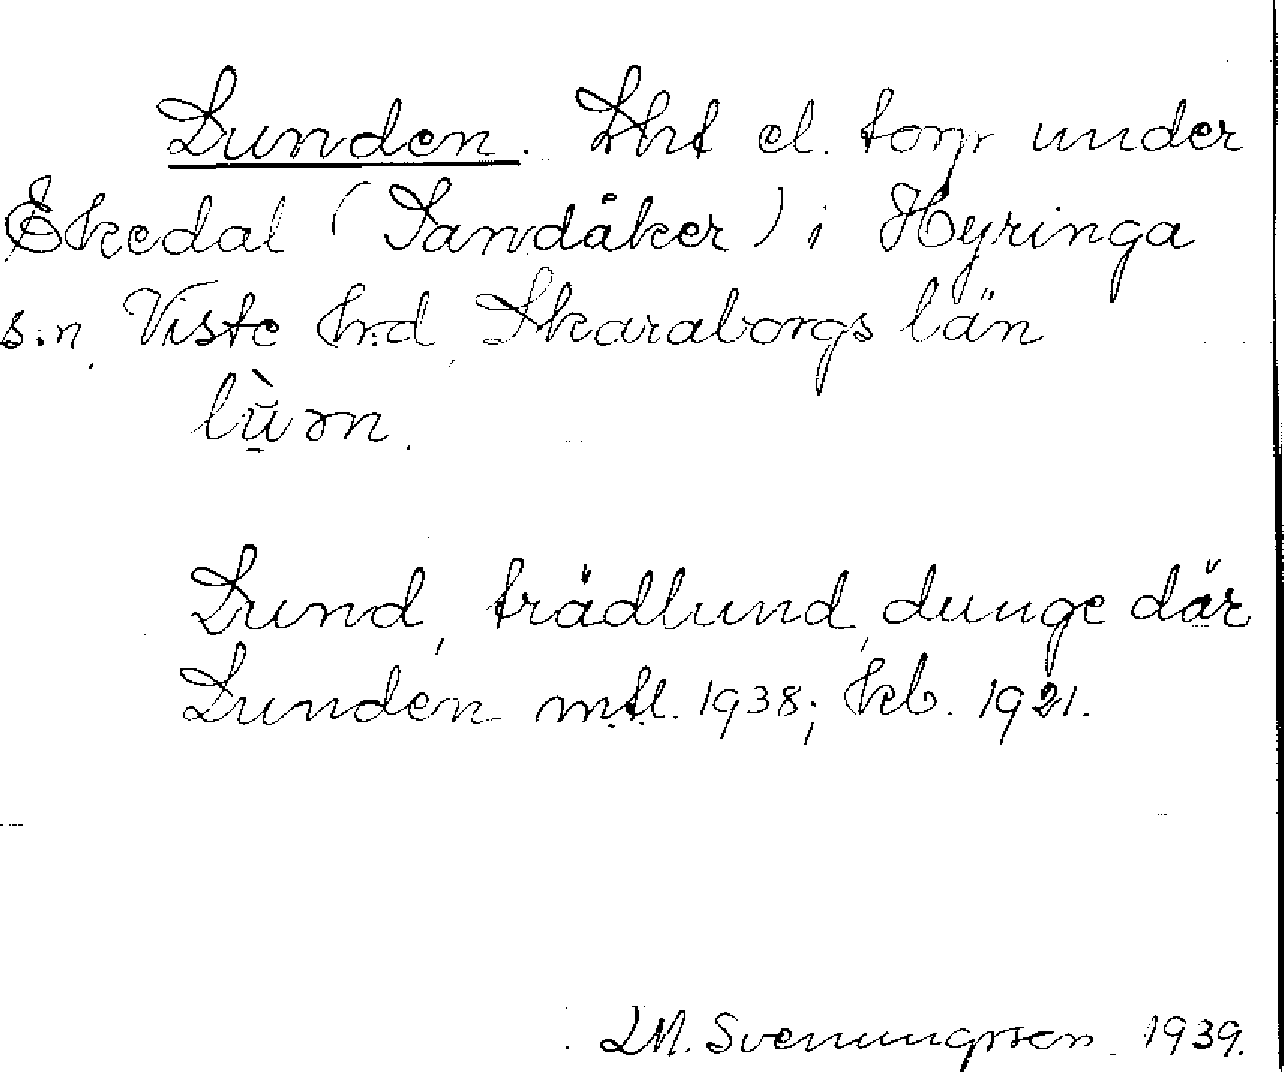 Lunden. Lht el. torp under
Ekedal (Sandåker) i Hyringa
s:n, Viste h:d, Skaraborgs län
lùən.
Lund, trädlund, dunge där
Lunden mtl. 1938; kb. 1921.
LM. Svenungsson 1939.